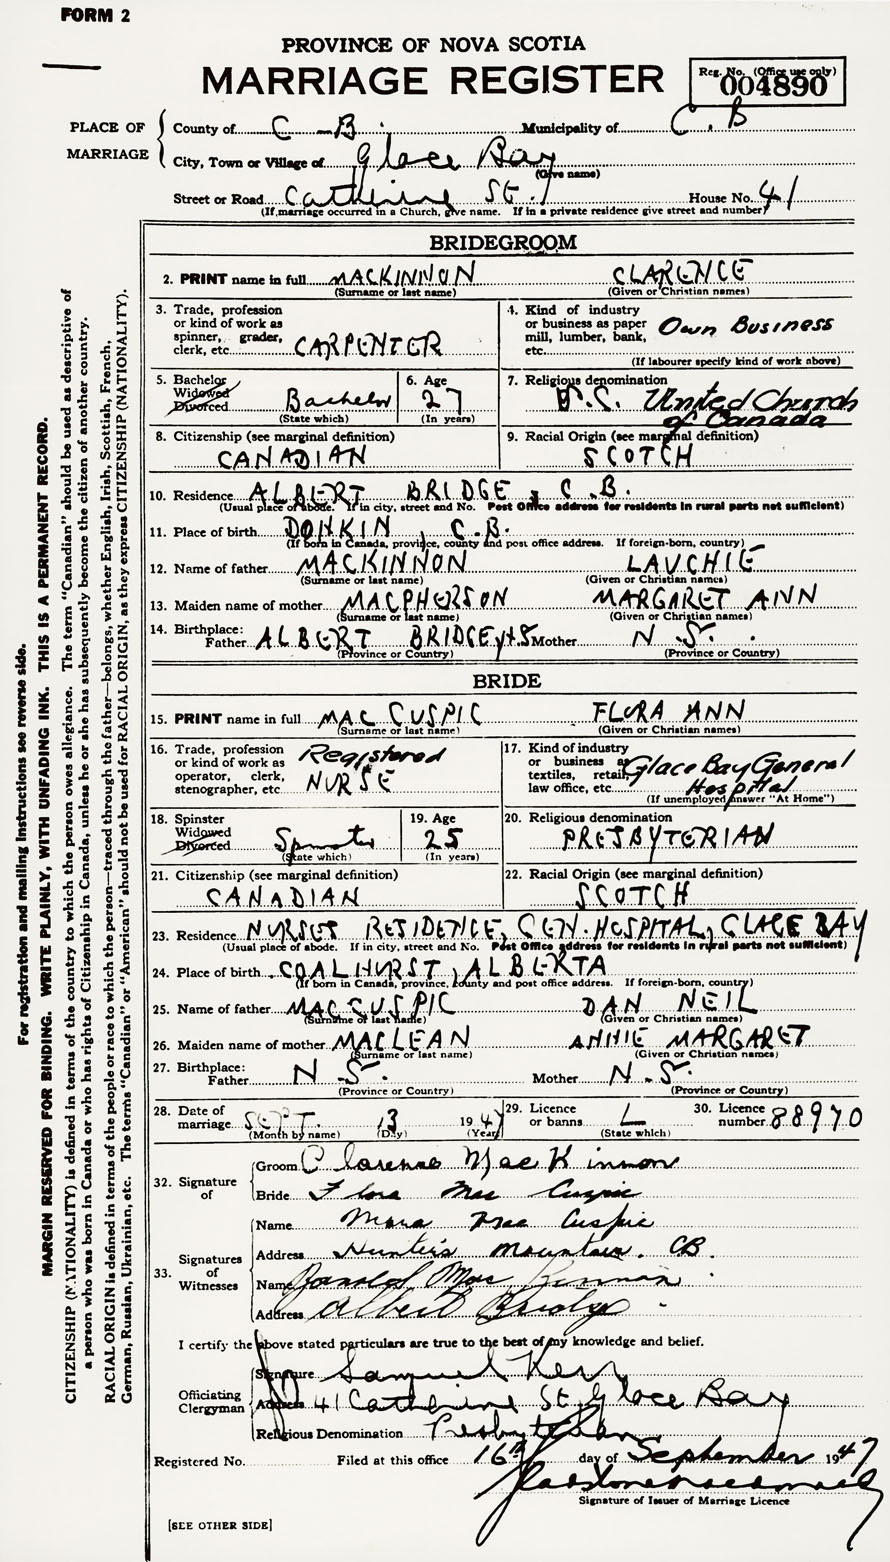 FORM 2
PROVINCE OF NOVA SCOTIA
MARRIAGE REGISTER
Reg. No. (Office use only)
004890
PLACE OF MARRIAGE
County of C-B. Municipality of C.B
City, Town or Village of Glace Bay
(Give name)
Street or Road Catherine St. House No. 41
(If marriage occurred in a Church, give name. If in a private residence give street and number)
BRIDEGROOM
2. PRINT name in full MACKINNON CLARENCE
(Surname or last name) (Given or Christian names)
3. Trade, profession or kind of work as spinner, grader, clerk, etc. CARPENTER
4. Kind of industry or business as paper mill, lumber, bank, etc. Own Business
(If labourer specify kind of work above)
5. Bachelor Widowed Divorced Bachelor
(State which)
6. Age 27
(In years)
7. Religious denomination United Church of Canada
8. Citizenship (see marginal definition) CANADIAN
9. Racial Origin (see marginal definition) SCOTCH
10. Residence ALBERT BRIDGE, C.B.
(Usual place of abode. If in city, street and No. Post Office address for residents in rural parts not sufficient)
11. Place of birth DONKIN, C.B.
(If born in Canada, province, county and post office address. If foreign-born, country)
12. Name of father MACKINNON LAUCHIE
(Surname or last name) (Given or Christian names)
13. Maiden name of mother MACPHERSON MARGARET ANN
(Surname or last name) (Given or Christian names)
14. Birthplace: Father ALBERT BRIDGE, N.S. Mother N.S.
(Province or Country) (Province or Country)
BRIDE
15. PRINT name in full MAC CUSPIC FLORA ANN
(Surname or last name) (Given or Christian names)
16. Trade, profession or kind of work as operator, clerk, stenographer, etc. Registered NURSE
17. Kind of industry or business as textiles, retail, law office, etc. Glace Bay General Hospital
(If unemployed answer "At Home")
18. Spinster Widowed Divorced Spinster
(State which)
19. Age 25
(In years)
20. Religious denomination PRESBYTERIAN
21. Citizenship (see marginal definition) CANADIAN
22. Racial Origin (see marginal definition) SCOTCH
23. Residence NURSES RESIDENCE, GEN. HOSPITAL, GLACE BAY
(Usual place of abode. If in city, street and No. Post Office address for residents in rural parts not sufficient)
24. Place of birth COALHURST, ALBERTA
(If born in Canada, province, county and post office address. If foreign-born, country)
25. Name of father MACCUSPIC DAN NEIL
(Surname of last name) (Given or Christian names)
26. Maiden name of mother MACLEAN ANNIE MARGARET
(Surname or last name) (Given or Christian names)
27. Birthplace: Father N.S. Mother N.S.
(Province or Country) (Province or Country)
28. Date of marriage SEPT. 13 1947
(Month by name) (Day) (Year)
29. Licence or banns L
(State which)
30. Licence number 88970
32. Signature of
Groom Clarence MacKinnon
Bride Flora MacCuspic
33. Signatures of Witnesses
Name Mora MacCuspic
Address Hunter's Mountain. CB.
Name Donald MacKinnon
Address Albert Bridge.
I certify the above stated particulars are true to the best of my knowledge and belief.
Officiating Clergyman
Signature Samuel Kerr
Address 41 Catherine St. Glace Bay
Religious Denomination Presbyterian
Registered No. Filed at this office 16th day of September 1947
Signature of Issuer of Marriage Licence
[SEE OTHER SIDE]
For registration and mailing instructions see reverse side.
MARGIN RESERVED FOR BINDING. WRITE PLAINLY, WITH UNFADING INK. THIS IS A PERMANENT RECORD.
CITIZENSHIP (NATIONALITY) is defined in terms of the country to which the person owes allegiance. The term "Canadian" should be used as descriptive of
a person who was born in Canada or who has rights of Citizenship in Canada, unless he or she has subsequently become the citizen of another country.
RACIAL ORIGIN is defined in terms of the people or race to which the person—traced through the father—belongs, whether English, Irish, Scottish, French,
German, Russian, Ukrainian, etc. The terms "Canadian" or "American" should not be used for RACIAL ORIGIN, as they express CITIZENSHIP (NATIONALITY).